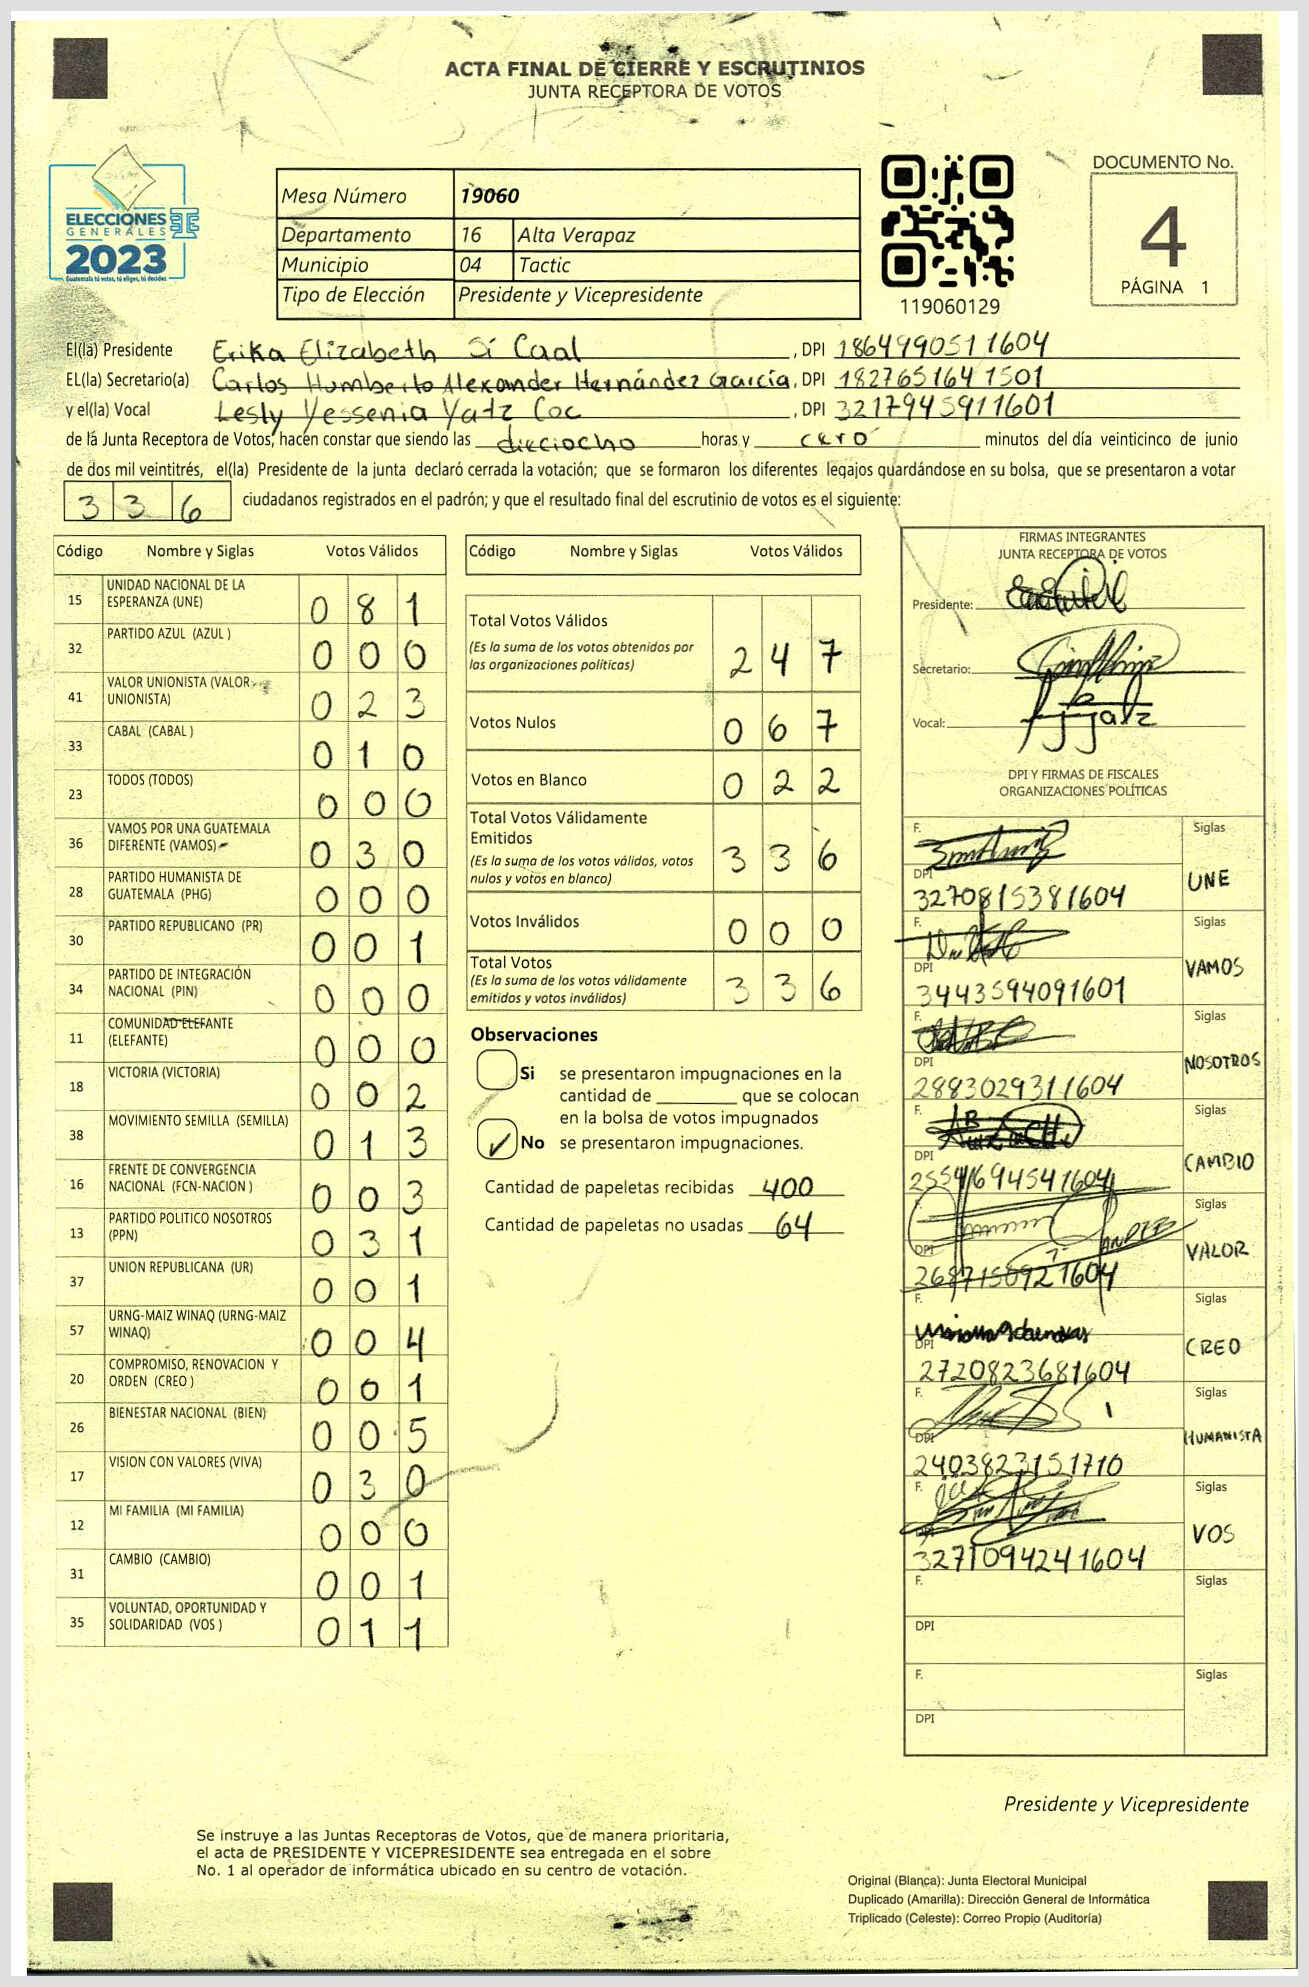 ACTA FINAL DE CIERRE Y ESCRUTINIOS
JUNTA RECEPTORA DE VOTOS
ELECCIONES
GENERALES
2023
Guatemala tú votas, tú eliges, tú decides
Mesa Número 19060
Departamento 16 Alta Verapaz
Municipio 04 Tactic
Tipo de Elección Presidente y Vicepresidente
119060129
DOCUMENTO No.
4
PÁGINA 1
El(la) Presidente Erika Elizabeth Sí Caal, DPI 1864990511604
EL(la) Secretario(a) Carlos Humberto Alexander Hernández García, DPI 1827651641501
y el(la) Vocal Lesly Yessenia Yatz Coc, DPI 3217945911601
de la Junta Receptora de Votos, hacen constar que siendo las dieciocho horas y cero minutos del día veinticinco de junio
de dos mil veintitrés, el(la) Presidente de la junta declaró cerrada la votación; que se formaron los diferentes legajos quardándose en su bolsa, que se presentaron a votar
336 ciudadanos registrados en el padrón; y que el resultado final del escrutinio de votos es el siguiente:
Código Nombre y Siglas Votos Válidos
15 UNIDAD NACIONAL DE LA ESPERANZA (UNE) 081
32 PARTIDO AZUL (AZUL ) 000
41 VALOR UNIONISTA (VALOR UNIONISTA) 023
33 CABAL (CABAL ) 010
23 TODOS (TODOS) 000
36 VAMOS POR UNA GUATEMALA DIFERENTE (VAMOS) 030
28 PARTIDO HUMANISTA DE GUATEMALA (PHG) 000
30 PARTIDO REPUBLICANO (PR) 001
34 PARTIDO DE INTEGRACIÓN NACIONAL (PIN) 000
11 COMUNIDAD ELEFANTE (ELEFANTE) 000
18 VICTORIA (VICTORIA) 002
38 MOVIMIENTO SEMILLA (SEMILLA) 013
16 FRENTE DE CONVERGENCIA NACIONAL (FCN-NACION ) 003
13 PARTIDO POLITICO NOSOTROS (PPN) 031
37 UNION REPUBLICANA (UR) 001
57 URNG-MAIZ WINAQ (URNG-MAIZ WINAQ) 004
20 COMPROMISO, RENOVACION Y ORDEN (CREO ) 001
26 BIENESTAR NACIONAL (BIEN) 005
17 VISION CON VALORES (VIVA) 030
12 MI FAMILIA (MI FAMILIA) 000
31 CAMBIO (CAMBIO) 001
35 VOLUNTAD, OPORTUNIDAD Y SOLIDARIDAD (VOS ) 011
Código Nombre y Siglas Votos Válidos
Total Votos Válidos
(Es la suma de los votos obtenidos por
las organizaciones políticas) 247
Votos Nulos 067
Votos en Blanco 022
Total Votos Válidamente
Emitidos
(Es la suma de los votos válidos, votos
nulos y votos en blanco) 336
Votos Inválidos 000
Total Votos
(Es la suma de los votos válidamente
emitidos y votos inválidos) 336
Observaciones
Si se presentaron impugnaciones en la
cantidad de ________ que se colocan
en la bolsa de votos impugnados
✓ No se presentaron impugnaciones.
Cantidad de papeletas recibidas 400
Cantidad de papeletas no usadas 64
FIRMAS INTEGRANTES
JUNTA RECEPTORA DE VOTOS
Presidente:
Secretario:
Vocal:
DPI Y FIRMAS DE FISCALES
ORGANIZACIONES POLÍTICAS
F. Siglas
DPI 3270815381604 UNE
F. Siglas
DPI 3443594091601 VAMOS
F. Siglas
DPI 2883029311604 NOSOTROS
F. Siglas
DPI 25541694541604 CAMBIO
F. Siglas
DPI 2687150921604 VALOR
F. Siglas
DPI 2720823681604 CREO
F. Siglas
DPI 2403823151710 HUMANISTA
F. Siglas
DPI 3271094241604 VOS
F. Siglas
DPI
F. Siglas
DPI
Presidente y Vicepresidente
Se instruye a las Juntas Receptoras de Votos, que de manera prioritaria,
el acta de PRESIDENTE Y VICEPRESIDENTE sea entregada en el sobre
No. 1 al operador de informática ubicado en su centro de votación.
Original (Blanca): Junta Electoral Municipal
Duplicado (Amarilla): Dirección General de Informática
Triplicado (Celeste): Correo Propio (Auditoría)